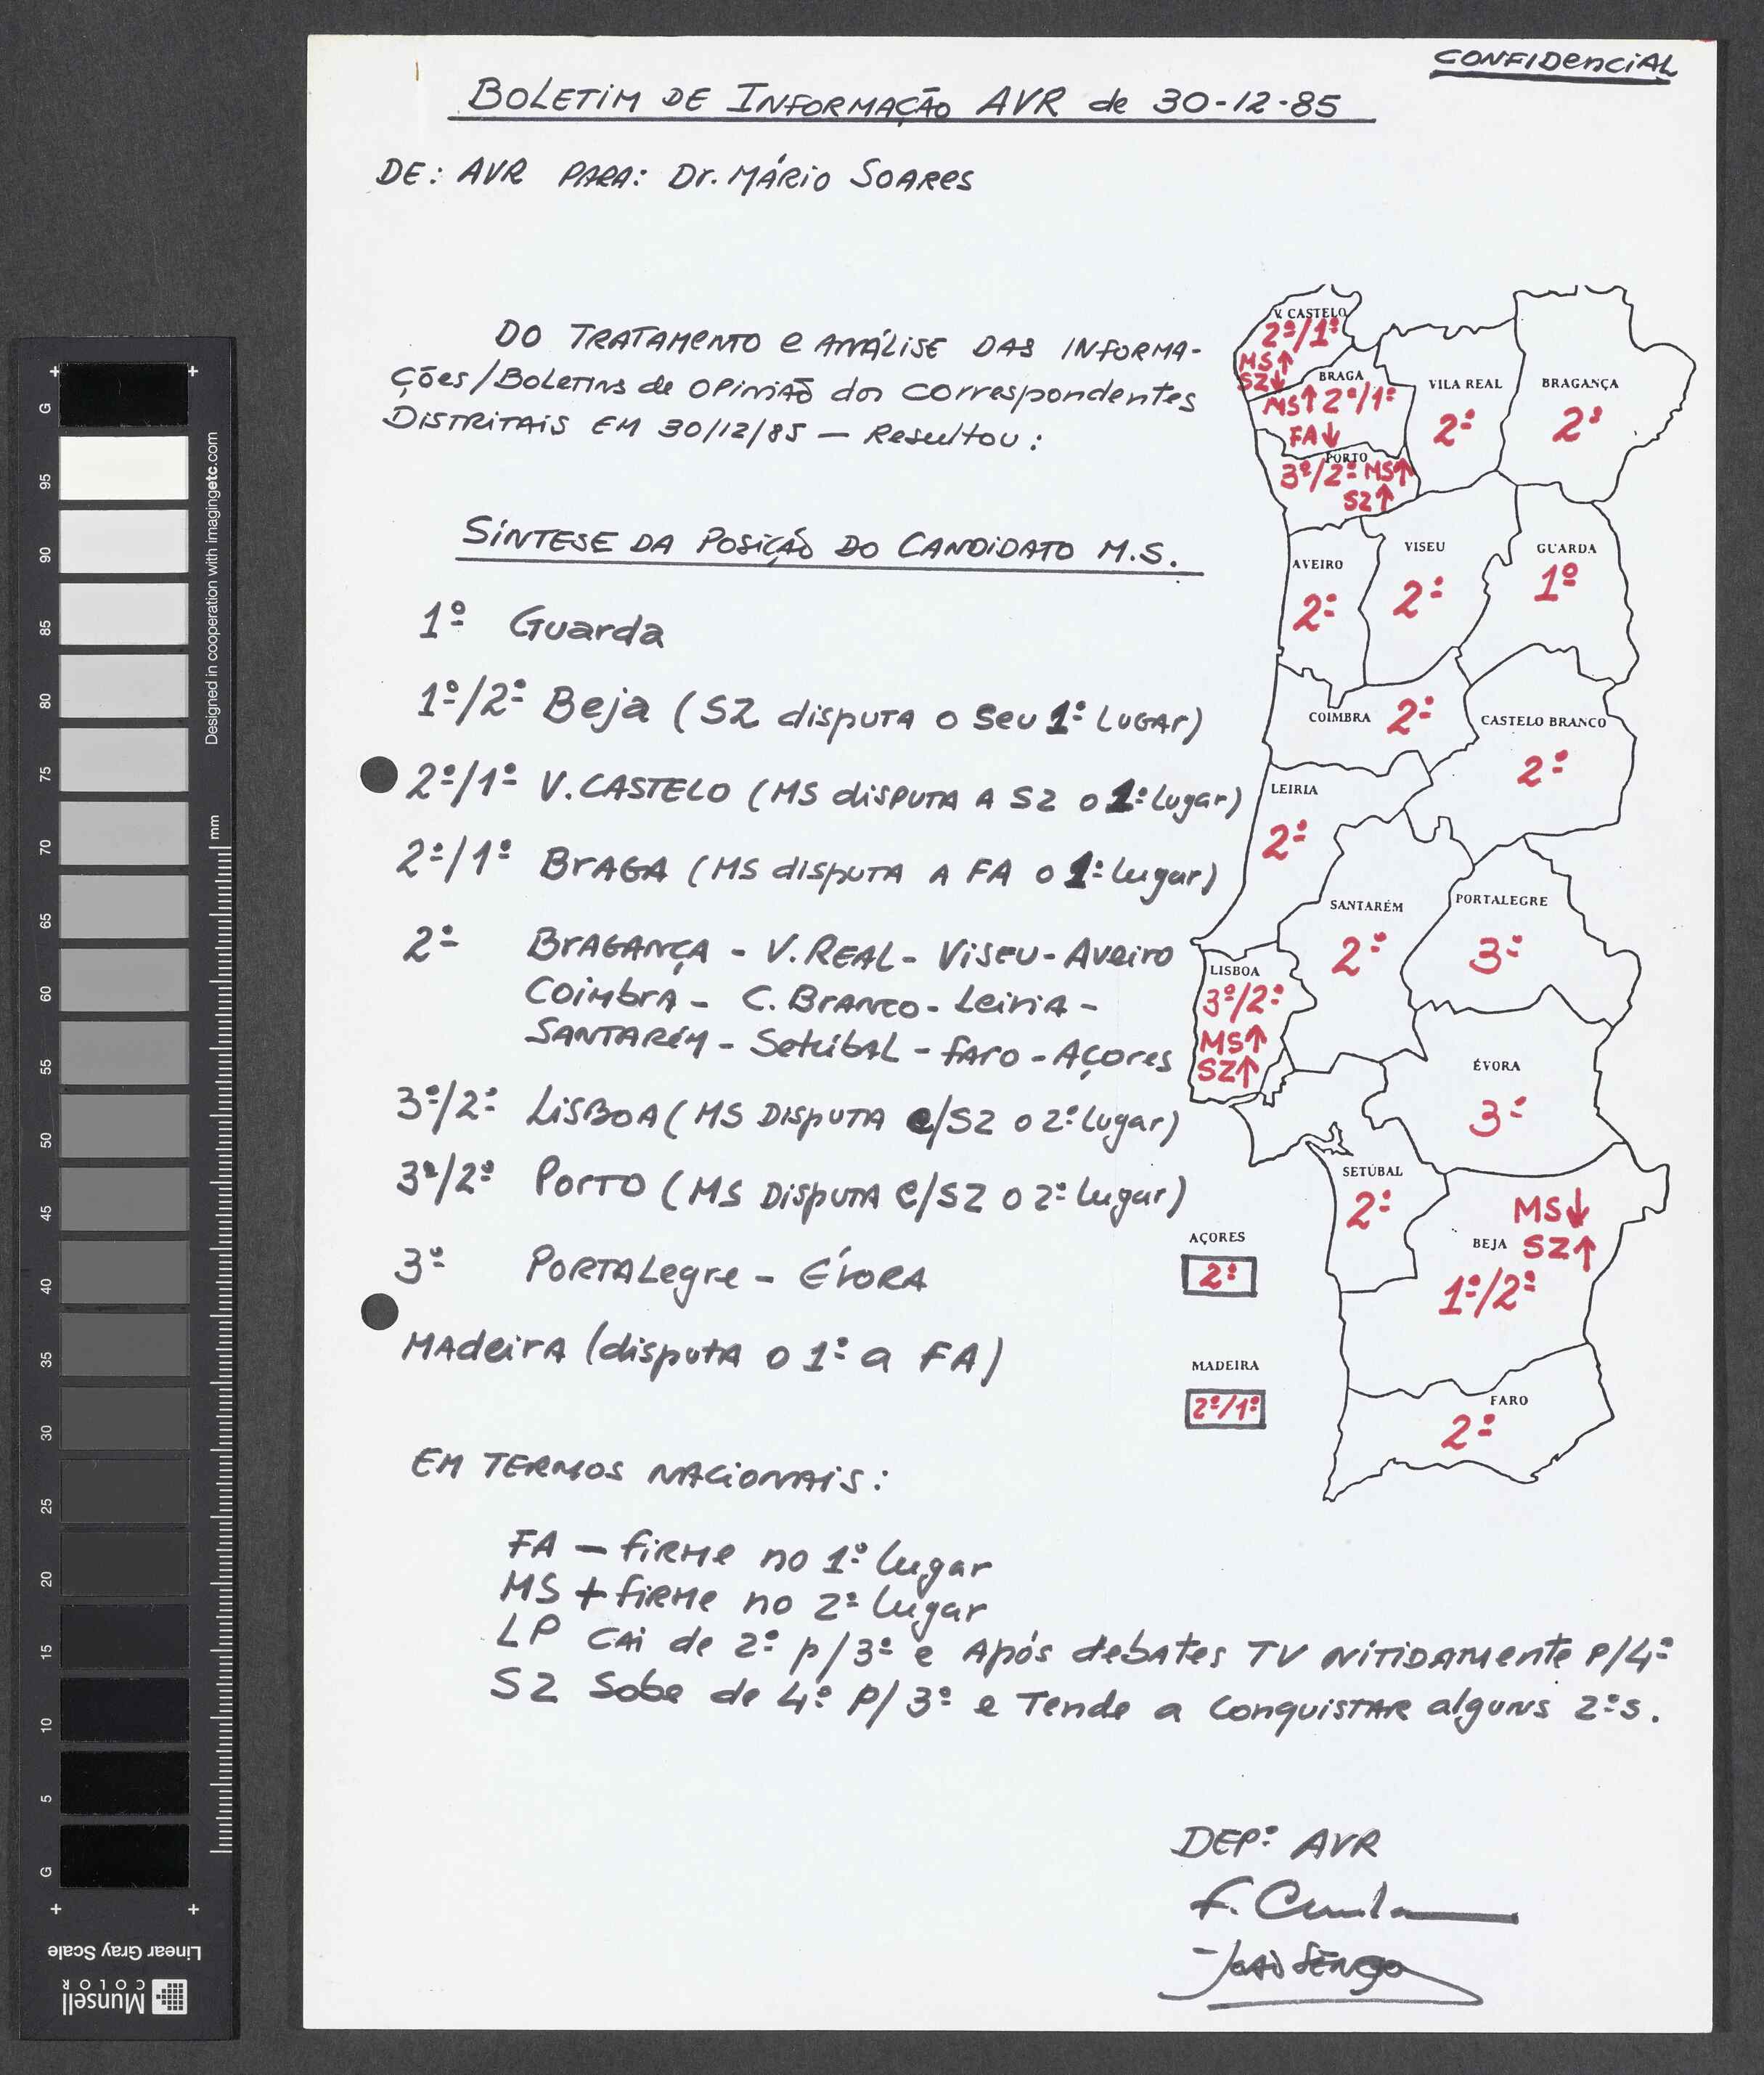 CONFIDENCIAL
BOLETIM DE INFORMAÇÃO AVR de 30-12-85
DE: AVR PARA: Dr. MÁRIO SOARES
DO TRATAMENTO e ANÁLISE DAS INFORMA-
ções/Boletins de opinião dos correspondentes
DISTRITAIS EM 30/12/85 — Resultou:
SÍNTESE DA POSIÇÃO DO CANDIDATO M.S.
1º Guarda
1º/2º Beja (SZ disputa o seu 1º LUGAR)
2º/1º V. CASTELO (MS disputa A SZ o 1º Lugar)
2º/1º BRAGA (MS disputa A FA o 1º Lugar)
2º BRAGANÇA - V. REAL - Viseu - Aveiro
Coimbra - C. Branco - Leiria -
SANTARÉM - Setúbal - faro - Açores
3º/2º LISBOA (MS DISPUTA c/SZ o 2º Lugar)
3º/2º PORTO (MS DISPUTA c/SZ o 2º Lugar)
3º PORTALegre - ÉVORA
MAdeirA (disputa o 1º a FA)
EM TERMOS NACIONAIS:
FA — firme no 1º lugar
MS + firme no 2º lugar
LP CAi de 2º p/3º e Após debates TV NITIDAMente P/4º
SZ Sobe de 4º P/3º e Tende a conquistar alguns 2ºs.
DEPº AVR
V. CASTELO
2º/1º
MS↑
SZ↓
BRAGA
MS↑ 2º/1º
FA↓
PORTO
3º/2º MS↑
SZ↑
VILA REAL
2º
BRAGANÇA
2º
AVEIRO
2º
VISEU
2º
GUARDA
1º
COIMBRA 2º
CASTELO BRANCO
2º
LEIRIA
2º
SANTARÉM
2º
PORTALEGRE
3º
LISBOA
3º/2º
MS↑
SZ↑
ÉVORA
3º
SETÚBAL
2º
MS↓
BEJA SZ↑
1º/2º
AÇORES
2º
MADEIRA
2º/1º
FARO
2º
G
95
90
85
80
75
70
65
60
55
50
45
40
35
30
25
20
15
10
5
G
mm
Designed in cooperation with imagingetc.com
Linear Gray Scale
Munsell
COLOR